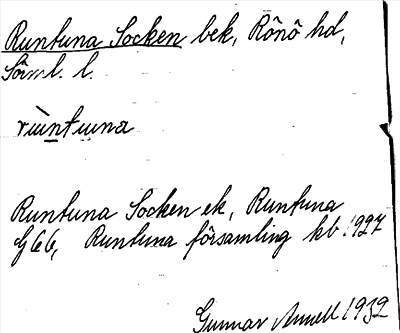 Runtuna Socken bek, Rönö hd,
Sörml. l.
rùntuna
Runtuna Socken ek, Runtuna
G 66, Runtuna församling kb 1927
Gunnar 1932